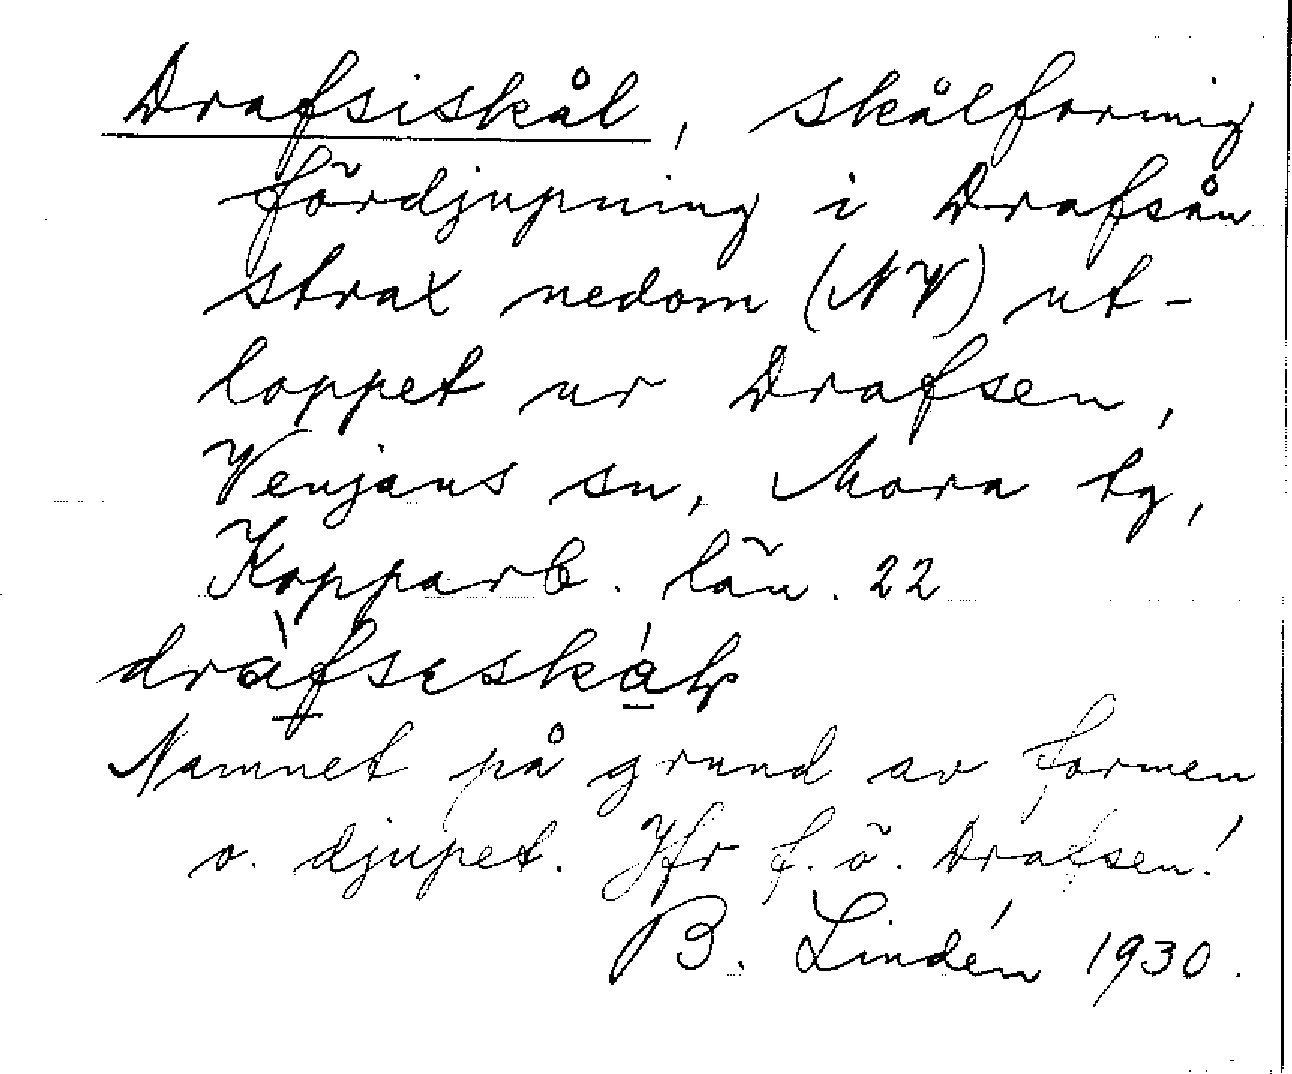 Drafsiskål, skålformig
fördjupning i Drafsån
strax nedom (NV) ut-
loppet ur Drafsen,
Venjans sn, Mora tg,
Kopparb. län. 22
dràfseskál
Namnet på grund av formen
o. djupet. Jfr f. ö. Drafsen!
B. Lindén 1930.